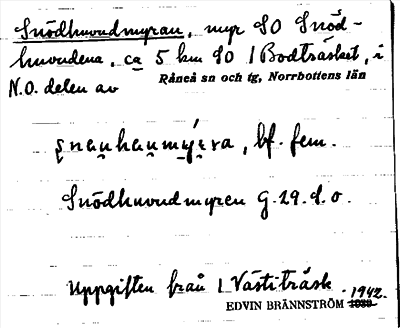 Snödhuvudmyran, myr SO Snöd-
huvudena, ca 5 km SO /Bodträsket, i
N.O. delen av Råneå sn och tg, Norrbottens län
, bf. fem.
Snödhuvudmyren G. 29. d. o.
Uppgiften från / Västiträsk
EDVIN BRÄNNSTRÖM 1942.